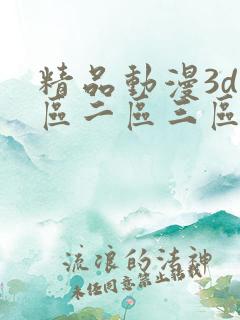 精品動漫3d
區二區三區
流浪的法神
未经同意禁止转载